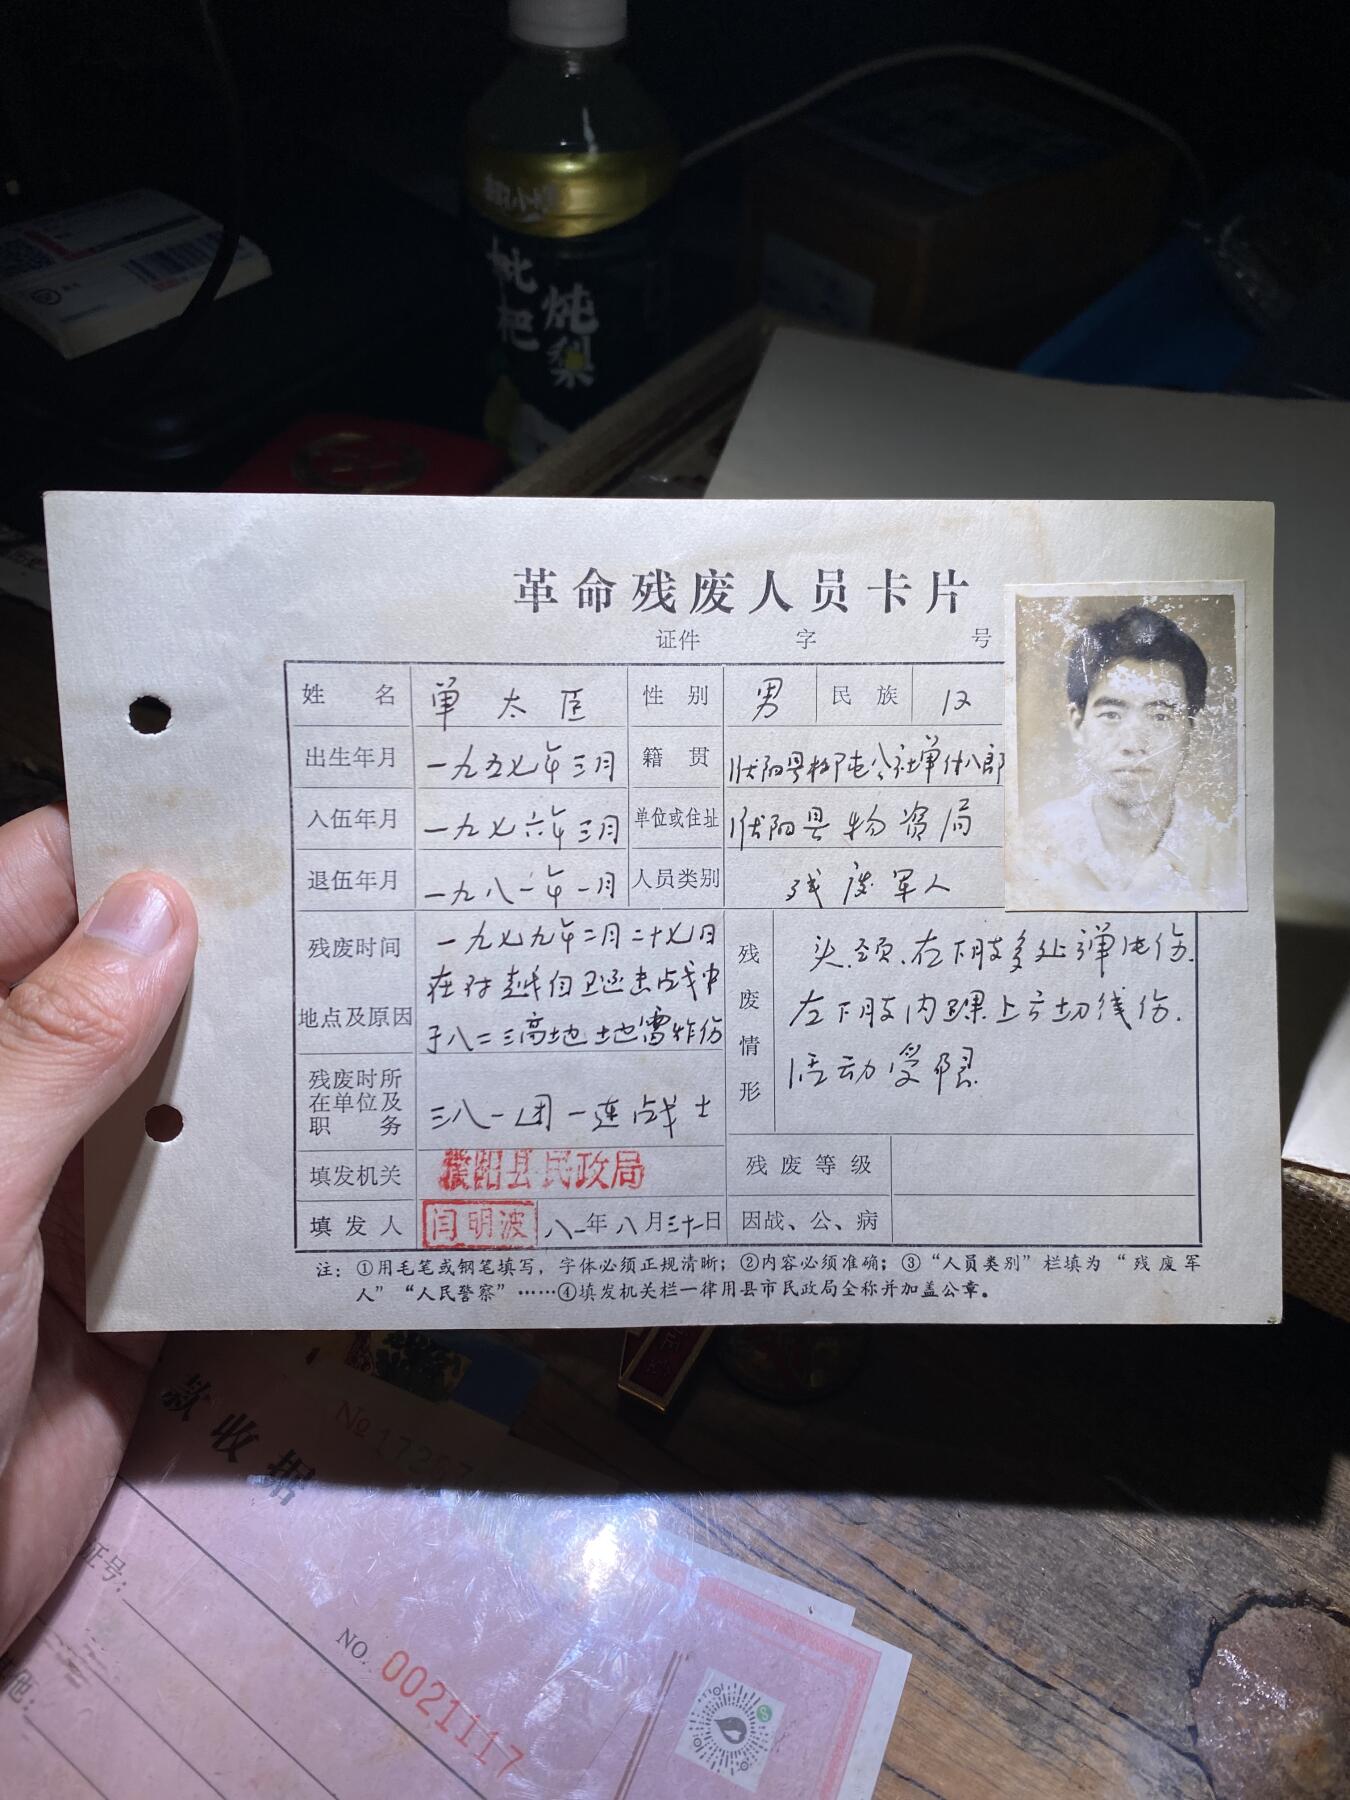 枇杷
炖梨
革命残废人员卡片
证件 字 号
姓名 单太臣 性别 男 民族 汉
出生年月 一九五七年三月 籍贯
入伍年月 一九七六年三月 单位或住址 濮阳县物资局
退伍年月 一九八一年一月 人员类别 残废军人
残废时间
地点及原因
一九七九年二月二十七日
在对越自卫还击战中
于八二三高地土地雷炸伤
残废时所
在单位及
职务
三八一团一连战士
残废情形
头.颈.左下肢多处弹片伤.
左下肢内踝上方切线伤.
活动受限
填发机关 濮阳县民政局 残废等级
填发人 闫明波 八一年八月三十一日 因战、公、病
注：①用毛笔或钢笔填写，字体必须正规清晰；②内容必须准确；③“人员类别”栏填为“残废军
人”“人民警察”……④填发机关栏一律用县市民政局全称并加盖公章。
款收据
证号：
NO. 0021117